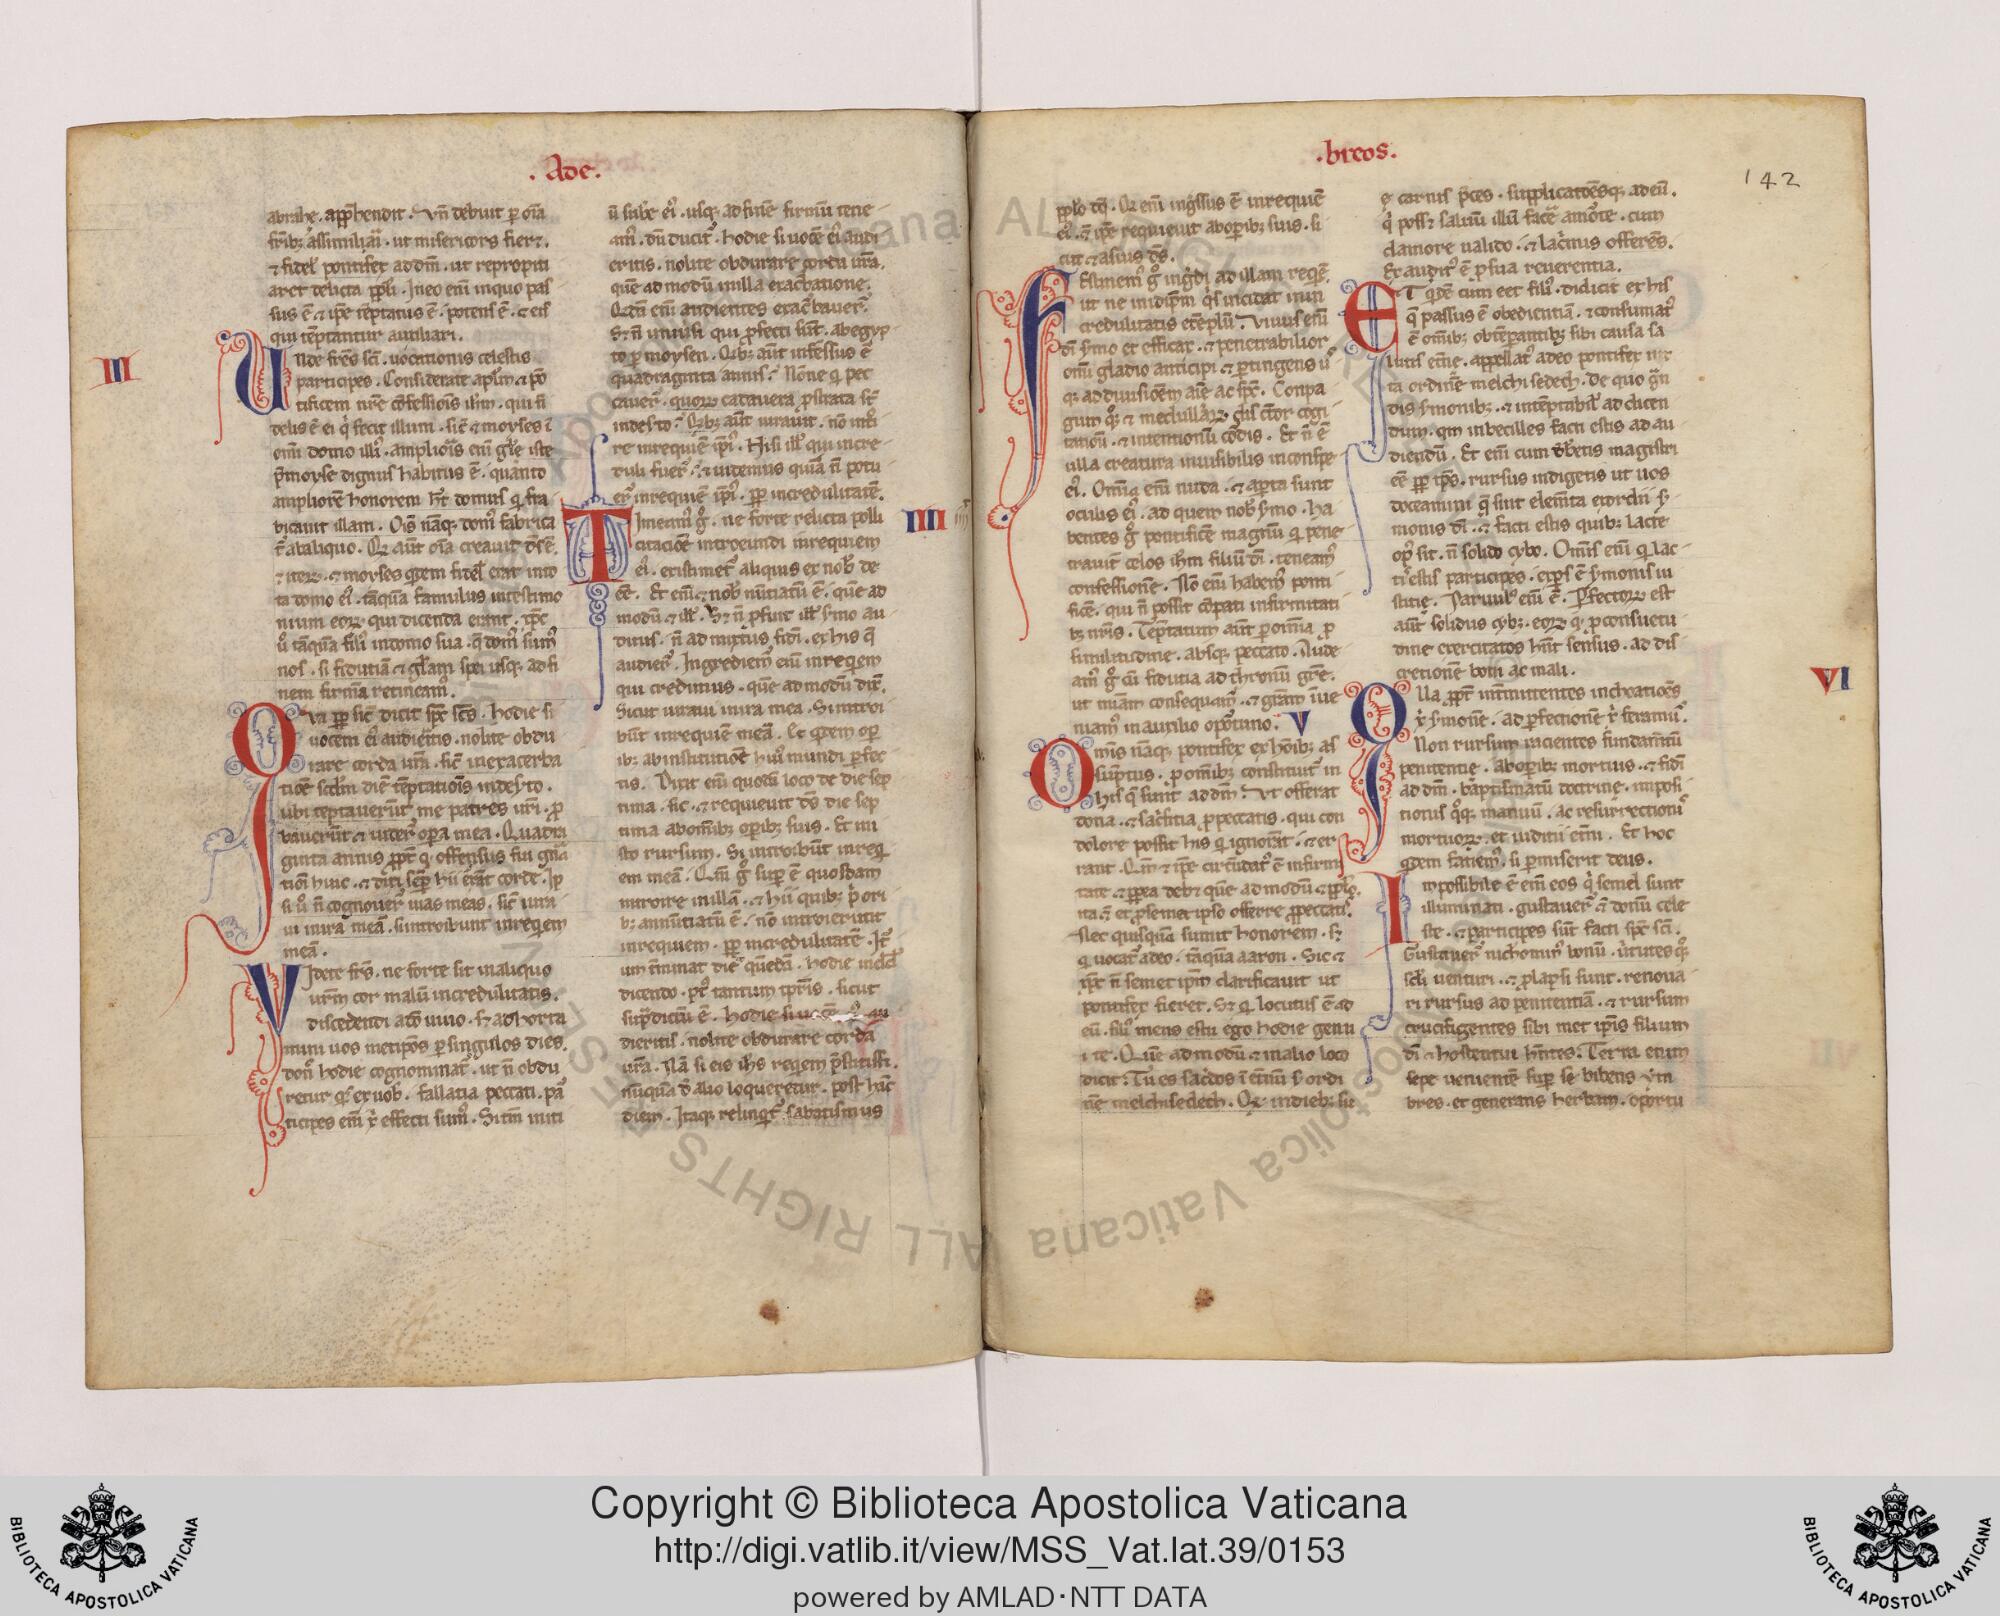 .Ade.
abrahe. app̄hendit. Vn̄ debuit ꝑ oīa
fr̄ib; assimilari. ut misericors fieret.
⁊ fidel' pontifex ad dm̄. ut repropiti
aret delicta pp̄li. In eo enī in quo pas
sus ē ⁊ ipē teptatus ē. potens ē. ⁊ eis
qui tēptantur auxiliari.
III
Unde frēs scī. uocationis celestis
participes. Considerate apl̄m ⁊ pō
tificem nr̄e cōfessiōis ih̄m. qui fi
delis ē ei q̇ fecit illum. sic̄ ⁊ moyses ī
om̄i domo illi'. amplioīs enī glē iste
p̄ moyse dignus habitus ē. quanto
ampliorē honorem ht̄ domus q̇ fra
bicauit illam. Oīs nāq; dom' fabrica
t̄ ab aliquo. Qı aūt oīa creauit ds̄ ē.
⁊ moyses qdem fidel' erat in to
ta domo ei'. tāquā famulus in testimo
nium eoꝝ. qui dicenda erant. xp̄c
u̇ tāquā fili' in domo sua. q̄ dom' sum'
nos. si fiduciā ⁊ gl̄am spei usq; ad fi
nem firmā retineam'.
Qua ꝓp̄ sic̄ dicit sp̄c scs̄. hodie si
uocem ei' audieritis. nolite obdu
rare corda ur̄a. sic̄ in exacerba
tiōe scd̄m diē tēptatiōis in deserto.
ubi teptauerūt me patres ur̄i. ꝓ
bauerūt ⁊ uider̄ opa mea. Quadra
ginta annis ꝓpt̄ q̇ offensus fui gn̄a
tioni huic. ⁊ dixi semꝑ hii errāt corde. Ip
si u̇ n̄ cognouer̄ uias meas. sic̄ iura
ui in ira meā. si introibunt in reqem
meā.
Videte frs̄. ne forte sit in aliquo
ur̄m cor malū incredulitatis.
discedendi a dō uiuo. sȝ adhorta
mini uos metipōs ꝑ singulos dies.
don̄ hodie cognominat'. ut n̄ obdu
retur qs̄ ex uob. fallatia peccati. pa'
ticipes enī xp̄i effecti sum'. Si tm̄ initi
ū sub'e ei'. usq; ad finē firmū tene
am'. dū dicit'. hodie si uocē ei' audi
eritis. nolite obdurare corda ur̄a.
quē ad modū in illa exac̄batione.
Qdā enī audientes exac̄bauer̄.
Sȝ n̄ uniuersi qui ꝓfecti sūt. ab egyp
to ꝑ moysen. Qb; aūt infessus ē
quadraginta annis? Nōne q̇ pec
cauer̄. quoꝝ cadauera ꝓstrata st̄
in deserto? Qb; aūt iurauit. nō intoi
re in requiē ipi'. N̄ isi ill' qui incre
duli fuer̄? ⁊ uidemus quia n̄ potu
er̄ in requiē ipi'. ꝓp̄ incredulitatē.
IIII
Timeam' ḡ. ne forte relicta polli
citaciōe introeundi in requiem
ei'. existimet' aliquis ex nob' de
eē. Et enī ⁊ nob' nūtiatū ē. quē ad
modū ⁊ ill'. Sȝ n̄ ꝓfuit ill' s̄mo au
ditus. n̄ admixtus fidei. ex his q̄
audier̄. Ingrediem' enī in reqem
qui credimus. quē ad modū dix̄.
Sicut iuraui in ira mea. Si introi
būt in requiē meā. Et qdem oꝑ
ib; ab institutiōe hui' mundi ꝑfec
tis. Dixit enī quodā loco de die sep
tima. sic. ⁊ requieuit ds̄ die sep
tima ab om̄ib; operib; suis. Et in i
sto rursum. Si introibūt in requi
em meā. Qm̄ ḡ sup̄ ē quosdam
introire in illā. ⁊ hii quib; p̄ori
b; annūtiatū ē. nō introierunt
in requiem. ꝓp̄ incredulitatē. It'
um t̄minat diē quēdā. hodie in dd̄
dicendo. pt' tantum tp̄ris. sicut
sup̄dictū ē. hodie si uocē ei' au
dieritis. nolite obdurare corda
ur̄a. Nā si eis ihs̄ reqem p̄stitiss.
nūquā d' alio loqueretur. post hāc
diem. Itaq; relinqit' sabatismus
.breos.
142
pp̄lo dī. Qı enī inḡssus ē in requiē
ei'. ⁊ ipē requieuit ab oꝑib; suis. si
cut ⁊ a suis ds̄.
Festinem' ḡ inḡdi ad illam reqē.
ut ne in idip̄m qs̄ incidat in in
credulitatis exēplū. Viuus enī
dī s̄mo et efficax. ⁊ penetrabilior
om̄i gladio ancipiti ⁊ ꝑtingens us
q; ad diuisiōem aīe ac sp̄c. Conpa
gum qq̇; ⁊ medullarꝝ. ⁊ discretor cogi
tationū. ⁊ intentionū cordis. Et n̄ ē
ulla creatura inuisibilis in conspe
ei'. Omnia enī nuda. ⁊ aꝑta sunt
oculis ei'. ad quem nob' s̄mo. Ha
bentes ḡ pontificē magnū q̇ pene
trauit celos ih̄m filiū dī. teneam'
confessionē. Nō enī habem' ponti
ficē. qui n̄ possit cōpati infirmitati
b; nr̄is. Tēptatum aūt ꝑ omnia ꝓ
similitudine. absq; peccato. Adea
am' ḡ cū fiducia ad thronū gr̄e.
ut mīam consequam'. ⁊ gr̄am īue
niam' in auxilio oportuno. V
Omnis nāq; pontifex ex hōib; as
sūptus. ꝓ om̄ib; constituit' in
his q̄ sunt ad dm̄. ut offerat
dona. ⁊ sacrificia ꝓ peccatis. qui con
dolore possit his q̇ ignorāt. ⁊ er
rant. Qm̄ ⁊ ipē circūdat' ē infirmi
tate ⁊ ꝓpea debet quē ad modū ⁊ ꝓ pp̄lo.
ita ⁊ et ꝓ semet ipso offerre ꝓ peccatis.
Nec quisquā sumit honorem. sȝ
q̇ uocat' a deo. tāquā aaron. Sic ⁊
xp̄c n̄ semet ipm̄ clarificauit ut
pontifex fieret. Sȝ q̇ locutus ē ad
eū. fili' meus es tu ego hodie genu
i te. Quē ad modū ⁊ in alio loco
dicit. Tu es sac̄dos ī et̄nū s̄ ordi
nē melchisedech. Qı in dieb; su
ę carnis p̄ces. supplicatōesq; ad eū.
q̇ posset saluū illū facē a mōte. cum
clamore ualido. ⁊ lac̄mis offerēs.
Exaudit' ē ꝓ sua reuerentia.
Et qdē cum eet fili'. didicit ex his
q̄ passus ē obedientiā. ⁊ consumat'
ē om̄ib; obtēꝑantib; sibi causa sa
lutis et̄ne. appellat' a deo pontifex iux
ta ordinē melchisedech. De quo gn̄
dis s̄monib;. ⁊ int̄ptabil' ad dicen
dum. qm̄ inbecilles facti estis ad au
diendū. Et enī cum deberetis magistri
eē ꝓp̄ tp̄s. rursus indigetis ut uos
doceamini q̄ sint elem̄ta exordii s̄
monis dī. ⁊ facti estis quib; lacte
op' sit. n̄ solido cybo. Omnis enī q̇ lac
tis est particeps. expers ē s̄monis iu
stitie. Paruul' enī ē. Perfectoꝝ est
aūt solidus cyb;. eoꝝ q̇ ꝓ consuetu
dine exercitatos hn̄t sensus. ad dis
cretionē boni ac mali.
VI
Quapp̄t int̄mittentes inchoatiōis
xp̄i s̄monē. ad ꝑfectionē feramur.
Non rursum iacientes fundam̄tū
penitentie. ab oꝑib; mortuis. ⁊ fidei
ad dm̄. baptismatū doctrine. inposi
tionis qq̇; manuū. ac resurrectionis
mortuoꝝ. et iudicii et̄ni. Et hoc
qdem faciem'. si ꝑmiserit deus.
Impossibile ē enī eos q̇ semel sunt
illuminati. gustauer̄ ⁊ donū cele
ste. ⁊ participes sūt facti sp̄c scī.
Gustauer̄ nichomin' bonū. ūtutesq;
sc̄li uenturi. ⁊ ꝓlapsi sunt. renoua
ri rursus ad penitentiā. ⁊ rursum
crucifigentes sibi met ipīs filium
dī ⁊ hostentui hn̄tes. Terra enim
sepe uenientē sup̄ se bibens ym
bres. et generans herbam. oportu
Copyright © Biblioteca Apostolica Vaticana
http://digi.vatlib.it/view/MSS_Vat.lat.39/0153
powered by AMLAD·NTT DATA
BIBLIOTECA APOSTOLICA VATICANA
BIBLIOTECA APOSTOLICA VATICANA